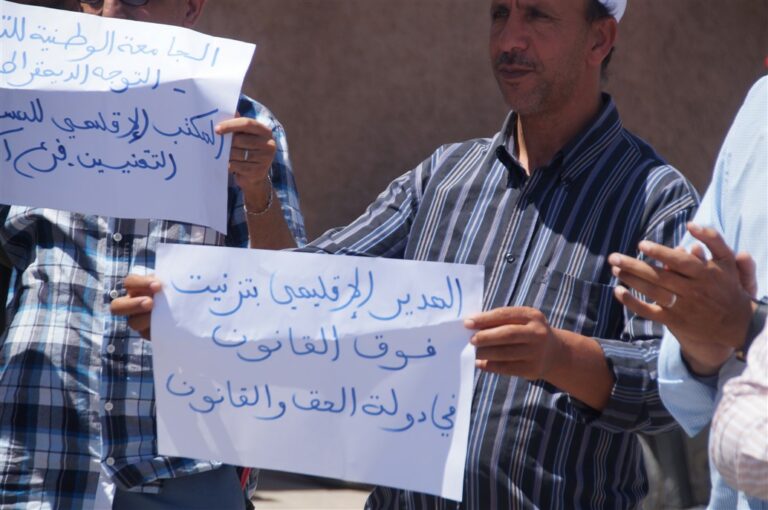 الجامعة الوطنية
التوجه الديمقراطي
المكتب الإقليمي
التقنيين في
المدير الإقليمي بتزنيت
فوق القانون
في دولة الحق والقانون